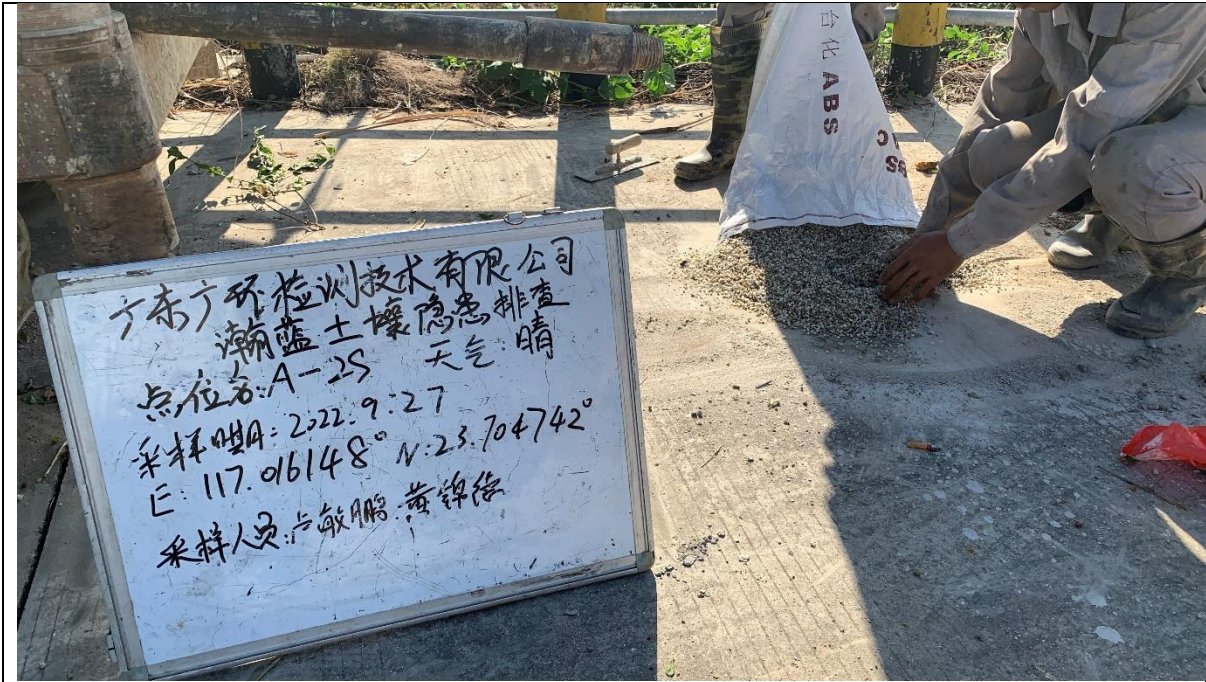 台化 ABS
ABS
广东广环检测技术有限公司
瀚蓝土壤隐患排查
点位名:A-2S 天气:晴
采样日期:2022.9.27
E:117.016148° N:23.704742°
采样人员:卢敏鹏、黄锦